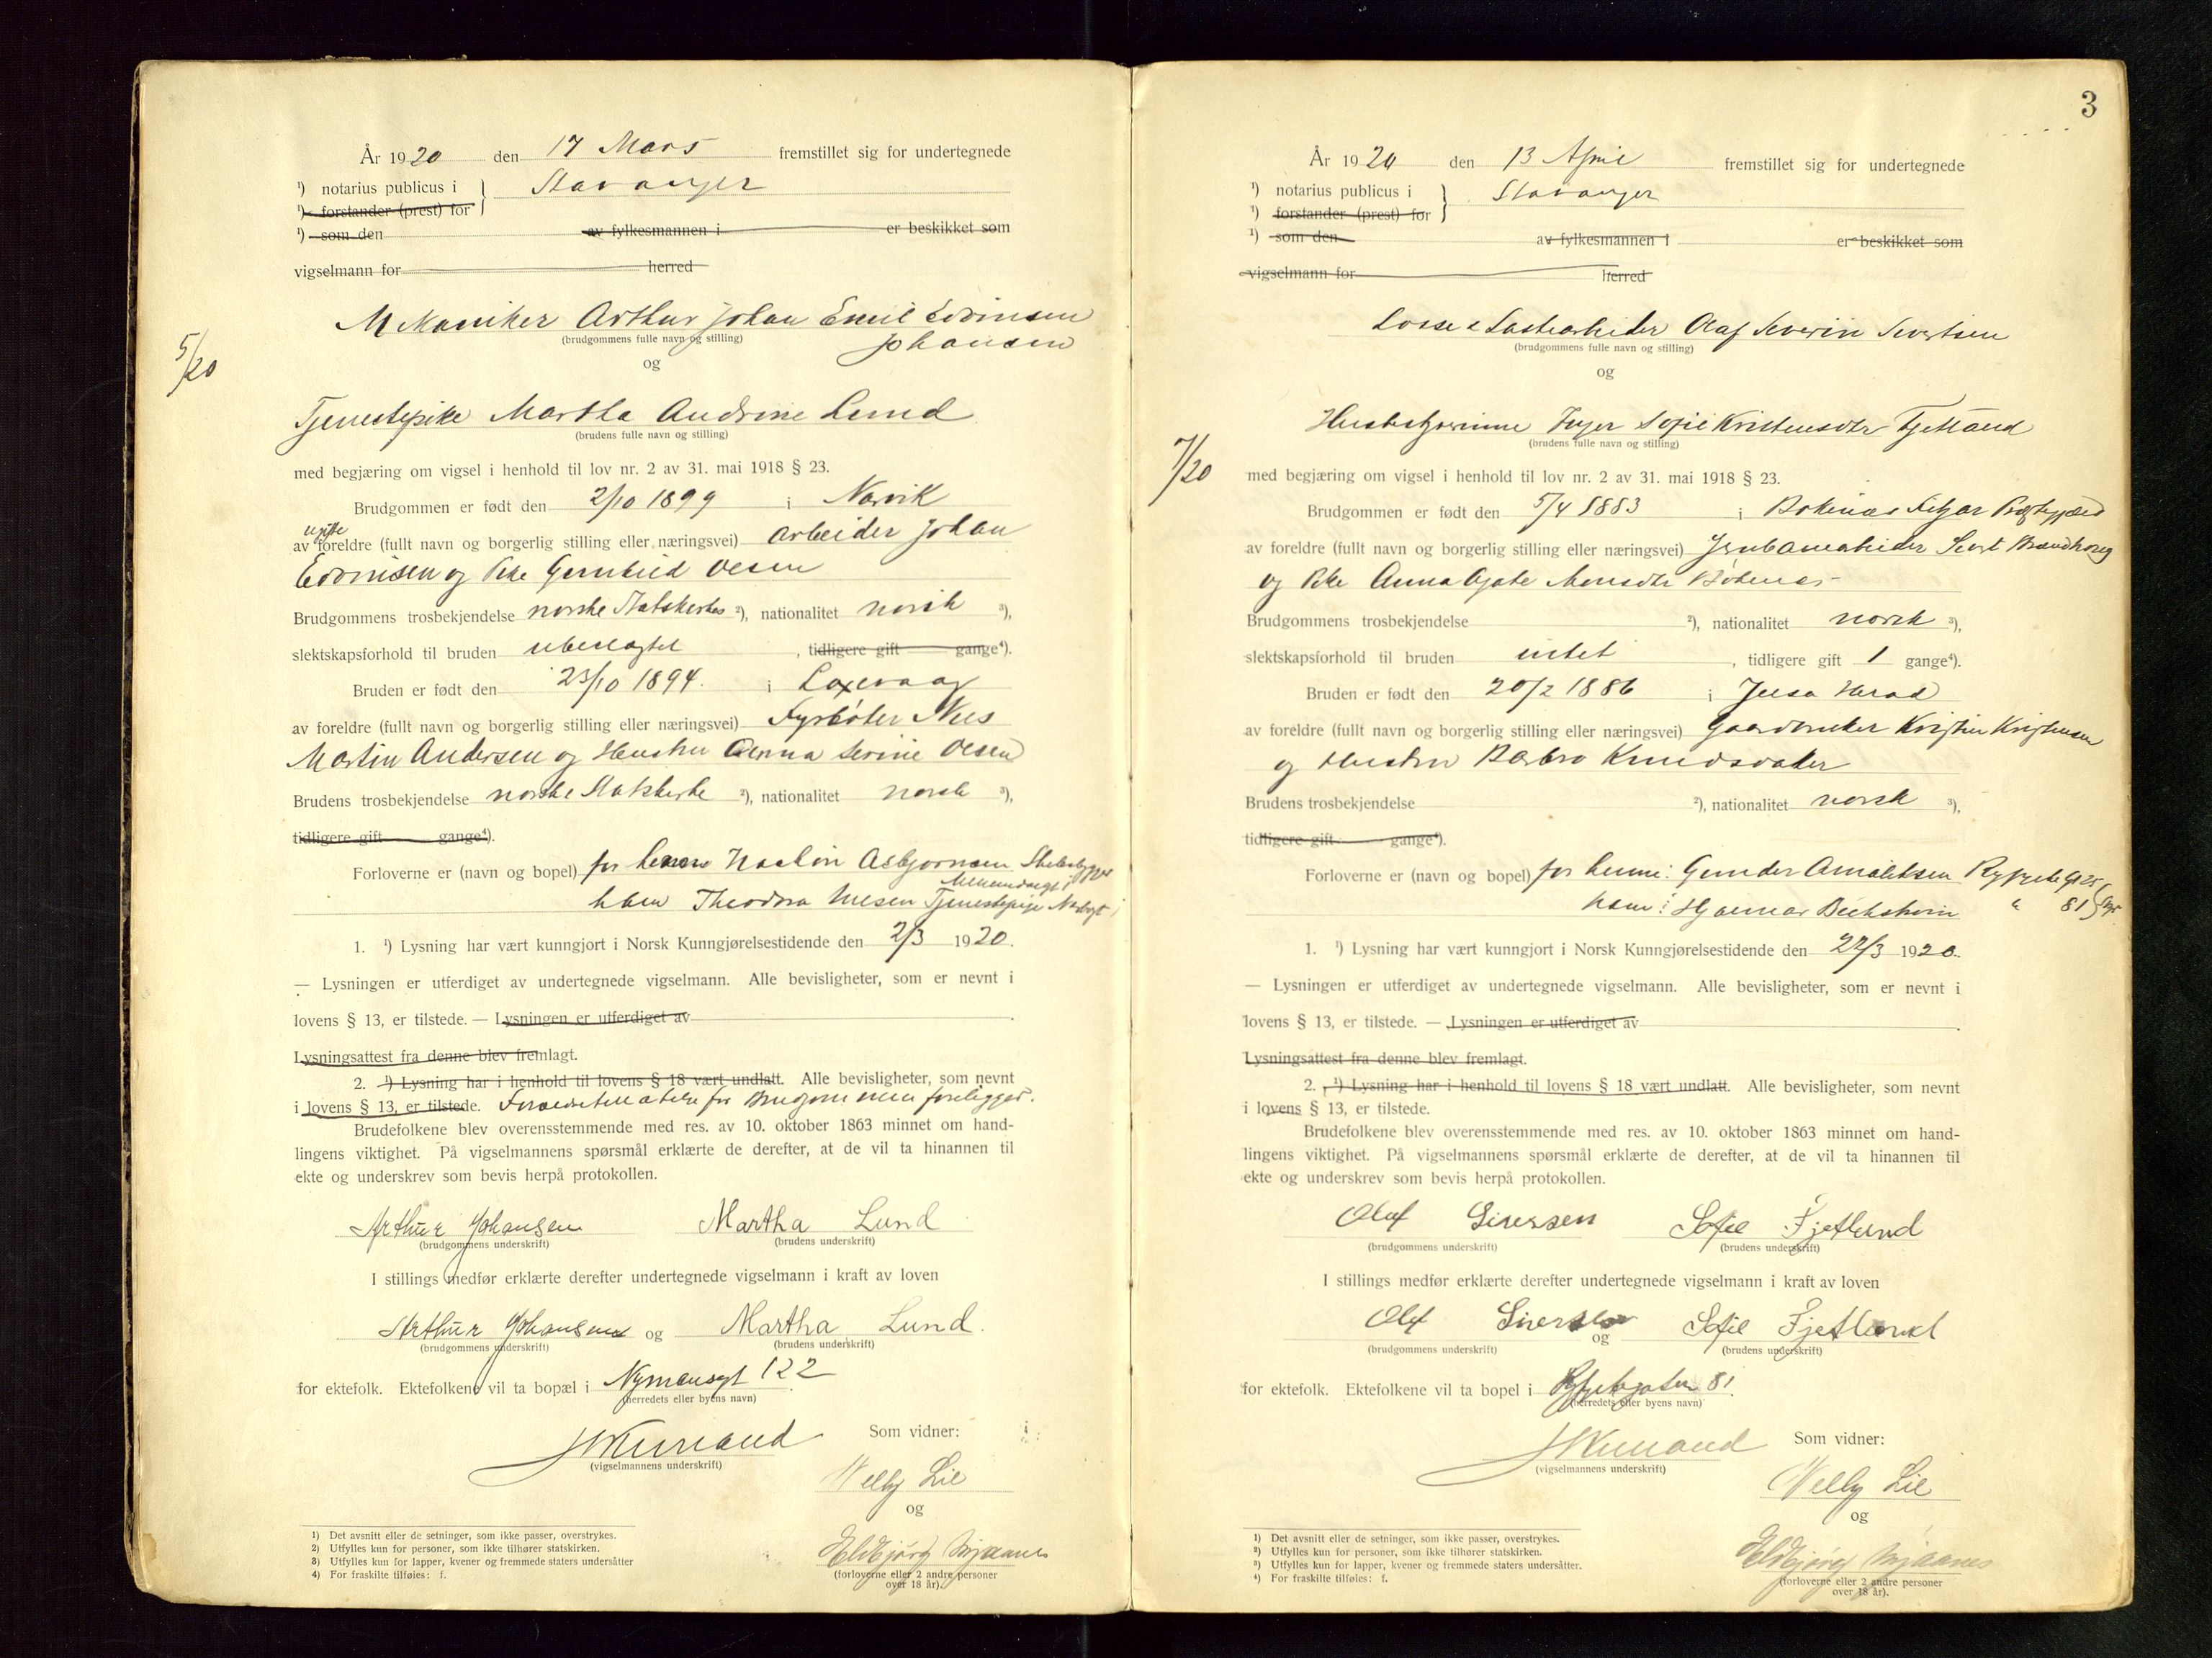 År 1920 den 17 Mars fremstillet sig for undertegnede
¹) notarius publicus i } Stavanger
¹) forstander (prest) for
¹) som den av fylkesmannen i er beskikket som
vigselmann for herred
Mekaniker Arthur Johan Emil Edvinsen
Johansen
(brudgommens fulle navn og stilling)
og
5/20
Tjenestepike Martha Andrine Lund
(brudens fulle navn og stilling)
med begjæring om vigsel i henhold til lov nr. 2 av 31. mai 1918 § 23.
Brudgommen er født den 2/10 1899 i Narvik
ugifte
av foreldre (fullt navn og borgerlig stilling eller næringsvei) arbeider Johan
Edvinsen og Pike Gernhild Olsen
Brudgommens trosbekjendelse norske Statskirke ²), nationalitet norsk ³),
slektskapsforhold til bruden ubeslægtet , tidligere gift gange⁴).
Bruden er født den 23/10 1894. i Laxevaag
av foreldre (fullt navn og borgerlig stilling eller næringsvei) Fyrbøter Nils
Martin Andersen og Hustru Anna Serine Olsen
Brudens trosbekjendelse norske Statskirke ²), nationalitet norsk ³),
tidligere gift gange⁴).
Forloverne er (navn og bopel) for henne Haakon Asbjørnsen
ham Theodora Tjenestepige
1. ¹) Lysning har vært kunngjort i Norsk Kunngjørelsestidende den 2/3 1920.
— Lysningen er utferdiget av undertegnede vigselmann. Alle bevisligheter, som er nevnt i
lovens § 13, er tilstede. — Lysningen er utferdiget av .
Lysningsattest fra denne blev fremlagt.
2. ¹) Lysning har i henhold til lovens § 18 vært undlatt. Alle bevisligheter, som nevnt
i lovens § 13, er tilstede. for Brudgommen foreligger.
Brudefolkene blev overensstemmende med res. av 10. oktober 1863 minnet om hand-
lingens viktighet. På vigselmannens spørsmål erklærte de derefter, at de vil ta hinannen til
ekte og underskrev som bevis herpå protokollen.
Arthur Johansen Martha Lund
(brudgommens underskrift) (brudens underskrift)
I stillings medfør erklærte derefter undertegnede vigselmann i kraft av loven
Arthur Johansen og Martha Lund.
(brudgommens underskrift) (brudens underskrift)
for ektefolk. Ektefolkene vil ta bopæl i Nymansgt 122
(herredets eller byens navn)
Som vidner:
(vigselmannens underskrift)
Welly Lie
og
Eldbjørg
(forloverne eller 2 andre personer
over 18 år).
1) Det avsnitt eller de setninger, som ikke passer, overstrykes.
2) Utfylles kun for personer, som ikke tilhører statskirken.
3) Utfylles kun for lapper, kvener og fremmede staters undersåtter
4) For fraskilte tilføies: f.
3
År 1920 den 13 April fremstillet sig for undertegnede
¹) notarius publicus i } Stavanger
¹) forstander (prest) for
¹) som den av fylkesmannen i er beskikket som
vigselmann for herred
Losse & Lastearbeider Olaf Severin Sivertsen
(brudgommens fulle navn og stilling)
og
Husbestyrerinne Inger Sofie Kristensdtr Fjetland
(brudens fulle navn og stilling)
7/20
med begjæring om vigsel i henhold til lov nr. 2 av 31. mai 1918 § 23.
Brudgommen er født den 5/4 1883 i Bokenæs
av foreldre (fullt navn og borgerlig stilling eller næringsvei) Jernbanearbeider
og Pike Anna Agate Monsdtr Bokenæs
Brudgommens trosbekjendelse ²), nationalitet norsk ³),
slektskapsforhold til bruden intet , tidligere gift 1 gange⁴).
Bruden er født den 20/2 1886 i Jelsa Herad
av foreldre (fullt navn og borgerlig stilling eller næringsvei) Gaardbruker Kristen Kristensen
og Hustru Barbro Knudsdatter
Brudens trosbekjendelse ²), nationalitet norsk ³),
tidligere gift gange⁴).
Forloverne er (navn og bopel) for henne: Gunder Amaliksen Ryfylkegt 25
ham: Hjalmar " 81
1. ¹) Lysning har vært kunngjort i Norsk Kunngjørelsestidende den 22/3 1920.
— Lysningen er utferdiget av undertegnede vigselmann. Alle bevisligheter, som er nevnt i
lovens § 13, er tilstede. — Lysningen er utferdiget av .
Lysningsattest fra denne blev fremlagt.
2. ¹) Lysning har i henhold til lovens § 18 vært undlatt. Alle bevisligheter, som nevnt
i lovens § 13, er tilstede.
Brudefolkene blev overensstemmende med res. av 10. oktober 1863 minnet om hand-
lingens viktighet. På vigselmannens spørsmål erklærte de derefter, at de vil ta hinannen til
ekte og underskrev som bevis herpå protokollen.
Olaf Siversen Sofie Fjetland
(brudgommens underskrift) (brudens underskrift)
I stillings medfør erklærte derefter undertegnede vigselmann i kraft av loven
Olaf Siversen og Sofie Fjetland
(brudgommens underskrift) (brudens underskrift)
for ektefolk. Ektefolkene vil ta bopel i Ryfylkegaten 81.
(herredets eller byens navn)
Som vidner:
(vigselmannens underskrift)
Welly Lie
og
Eldbjørg
(forloverne eller 2 andre personer
over 18 år).
1) Det avsnitt eller de setninger, som ikke passer, overstrykes.
2) Utfylles kun for personer, som ikke tilhører statskirken.
3) Utfylles kun for lapper, kvener og fremmede staters undersåtter.
4) For fraskilte tilføies: f.